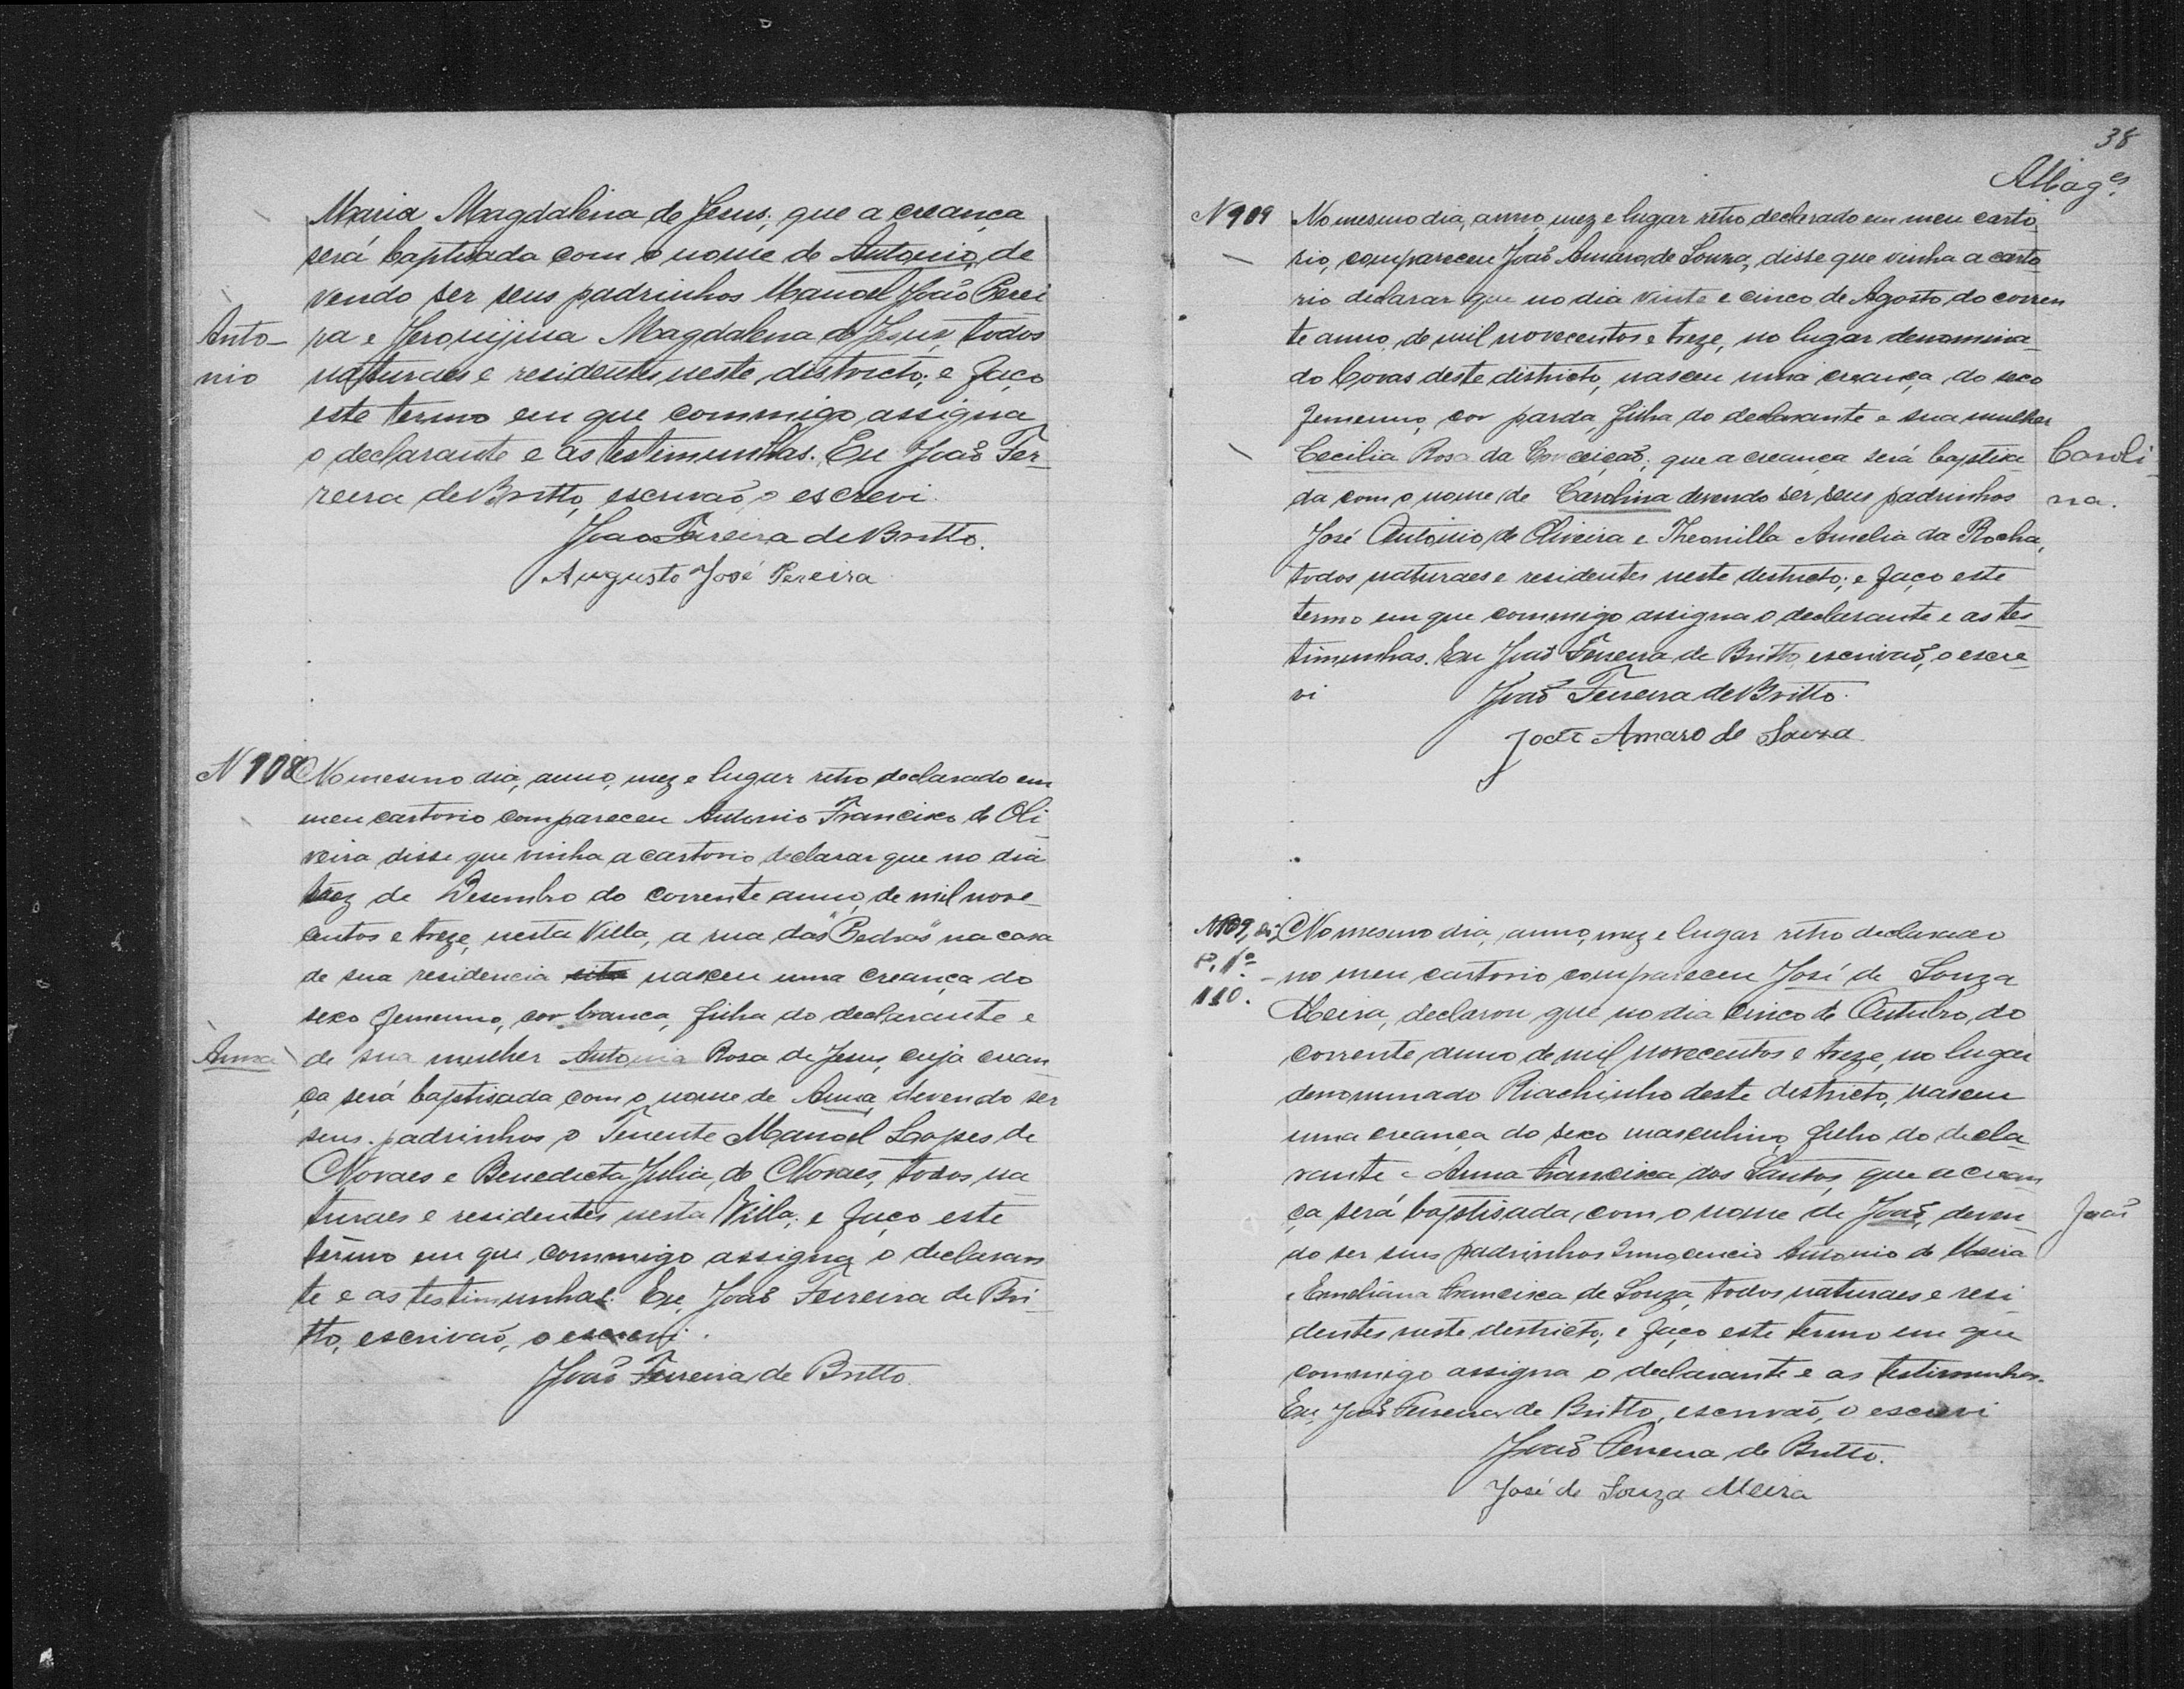 Maria Magdalena de Jesus; que a creança
será baptisada com o nome de Antonio, de
vendo ser seus padrinhos Manoel João Perei
Anto-
nio
ra e Jeronijma Magdalena de Jesus, todos
naturaes e residentes neste districto; e faço
este termo em que commigo assigna
o declarante e as testimunhas. Eu João Fer-
reira de Britto, escrivaõ, o escrevi.
Joao Ferreira de Britto.
Augusto José Pereira
N 108 No mesmo dia, anno, mez e lugar retro declarado em
meu cartorio compareceu Antonio Francisco de Oli-
veira disse que vinha a cartorio declarar que no dia
trez de Desembro do corrente anno, de mil nove-
centos e treze, nesta Villa, a rua das "Pedras" na casa
de sua residencia sita nasceu uma creança do
sexo femenno, cor branca, filha do declarante e
Anna de sua mulher Antonia Rosa de Jesus, cuja crean
ça será baptisada com o nome de Anna, devendo ser
seus padrinhos o Tenente Manoel Lopes de
Novaes e Benedicta Julia de Novaes, todos na
turaes e residentes nesta Villa; e faço este
termo em que commigo assigna o declaran
te e as testimunhas. Eu, Joaõ Ferreira de Bri-
tto, escrivaõ, o escrevi.
Joaõ Ferreira de Britto.
38
Mag.es
N 909 No mesmo dia, anno, mez e lugar retro declarado em meu carto
rio, compareceu Joaõ Amaro de Souza, disse que vinha a carto
rio declarar que no dia vinte e cinco de Agosto do corren
te anno, de mil novecentos e treze, no lugar denomina-
do Covas deste districto, nasceu uma creança do sexo
femenno, cor parda filha do declarante e sua mulher
Cecilia Rosa da Conceiçaõ; que a creança será baptisa
Caroli
na.
da com o nome de Carolina devendo ser seus padrinhos
José Antonio de Oliveira e Theonilla Amelia da Rocha,
todos naturaes e residentes neste destricto; e faço este
termo em que commigo assigna o declarante e as tes-
timunhas. Eu Joaõ Ferreira de Britto, escrivaõ, o escre-
vi
Joaõ Ferreira de Britto.
João Amaro de Souza
110.
No mesmo dia, anno, mez e lugar retro declarado
no meu cartorio compareceu José de Souza
Meira, declarou que no dia cinco de Outubro, do
corrente anno de mil novecentos e treze, no lugar
denominado Riachinho deste destricto, nasceu
uma creança do sexo masculino, filho do decla-
rante e Anna Francisca dos Santos, que a crean
ça será baptisada, com o nome de Joaõ, deven-
Joaõ
do ser seus padrinhos Innocencio Antonio de Meira
e Emeliana Francisca de Souza, todos naturaes e resi-
dentes neste destricto; e faço este termo em que
commigo assigna o declarante e as testimunhas.
Eu, Joaõ Ferreira de Britto, escrivaõ, o escrevi
Joaõ Ferreira de Britto.
José de Souza Meira